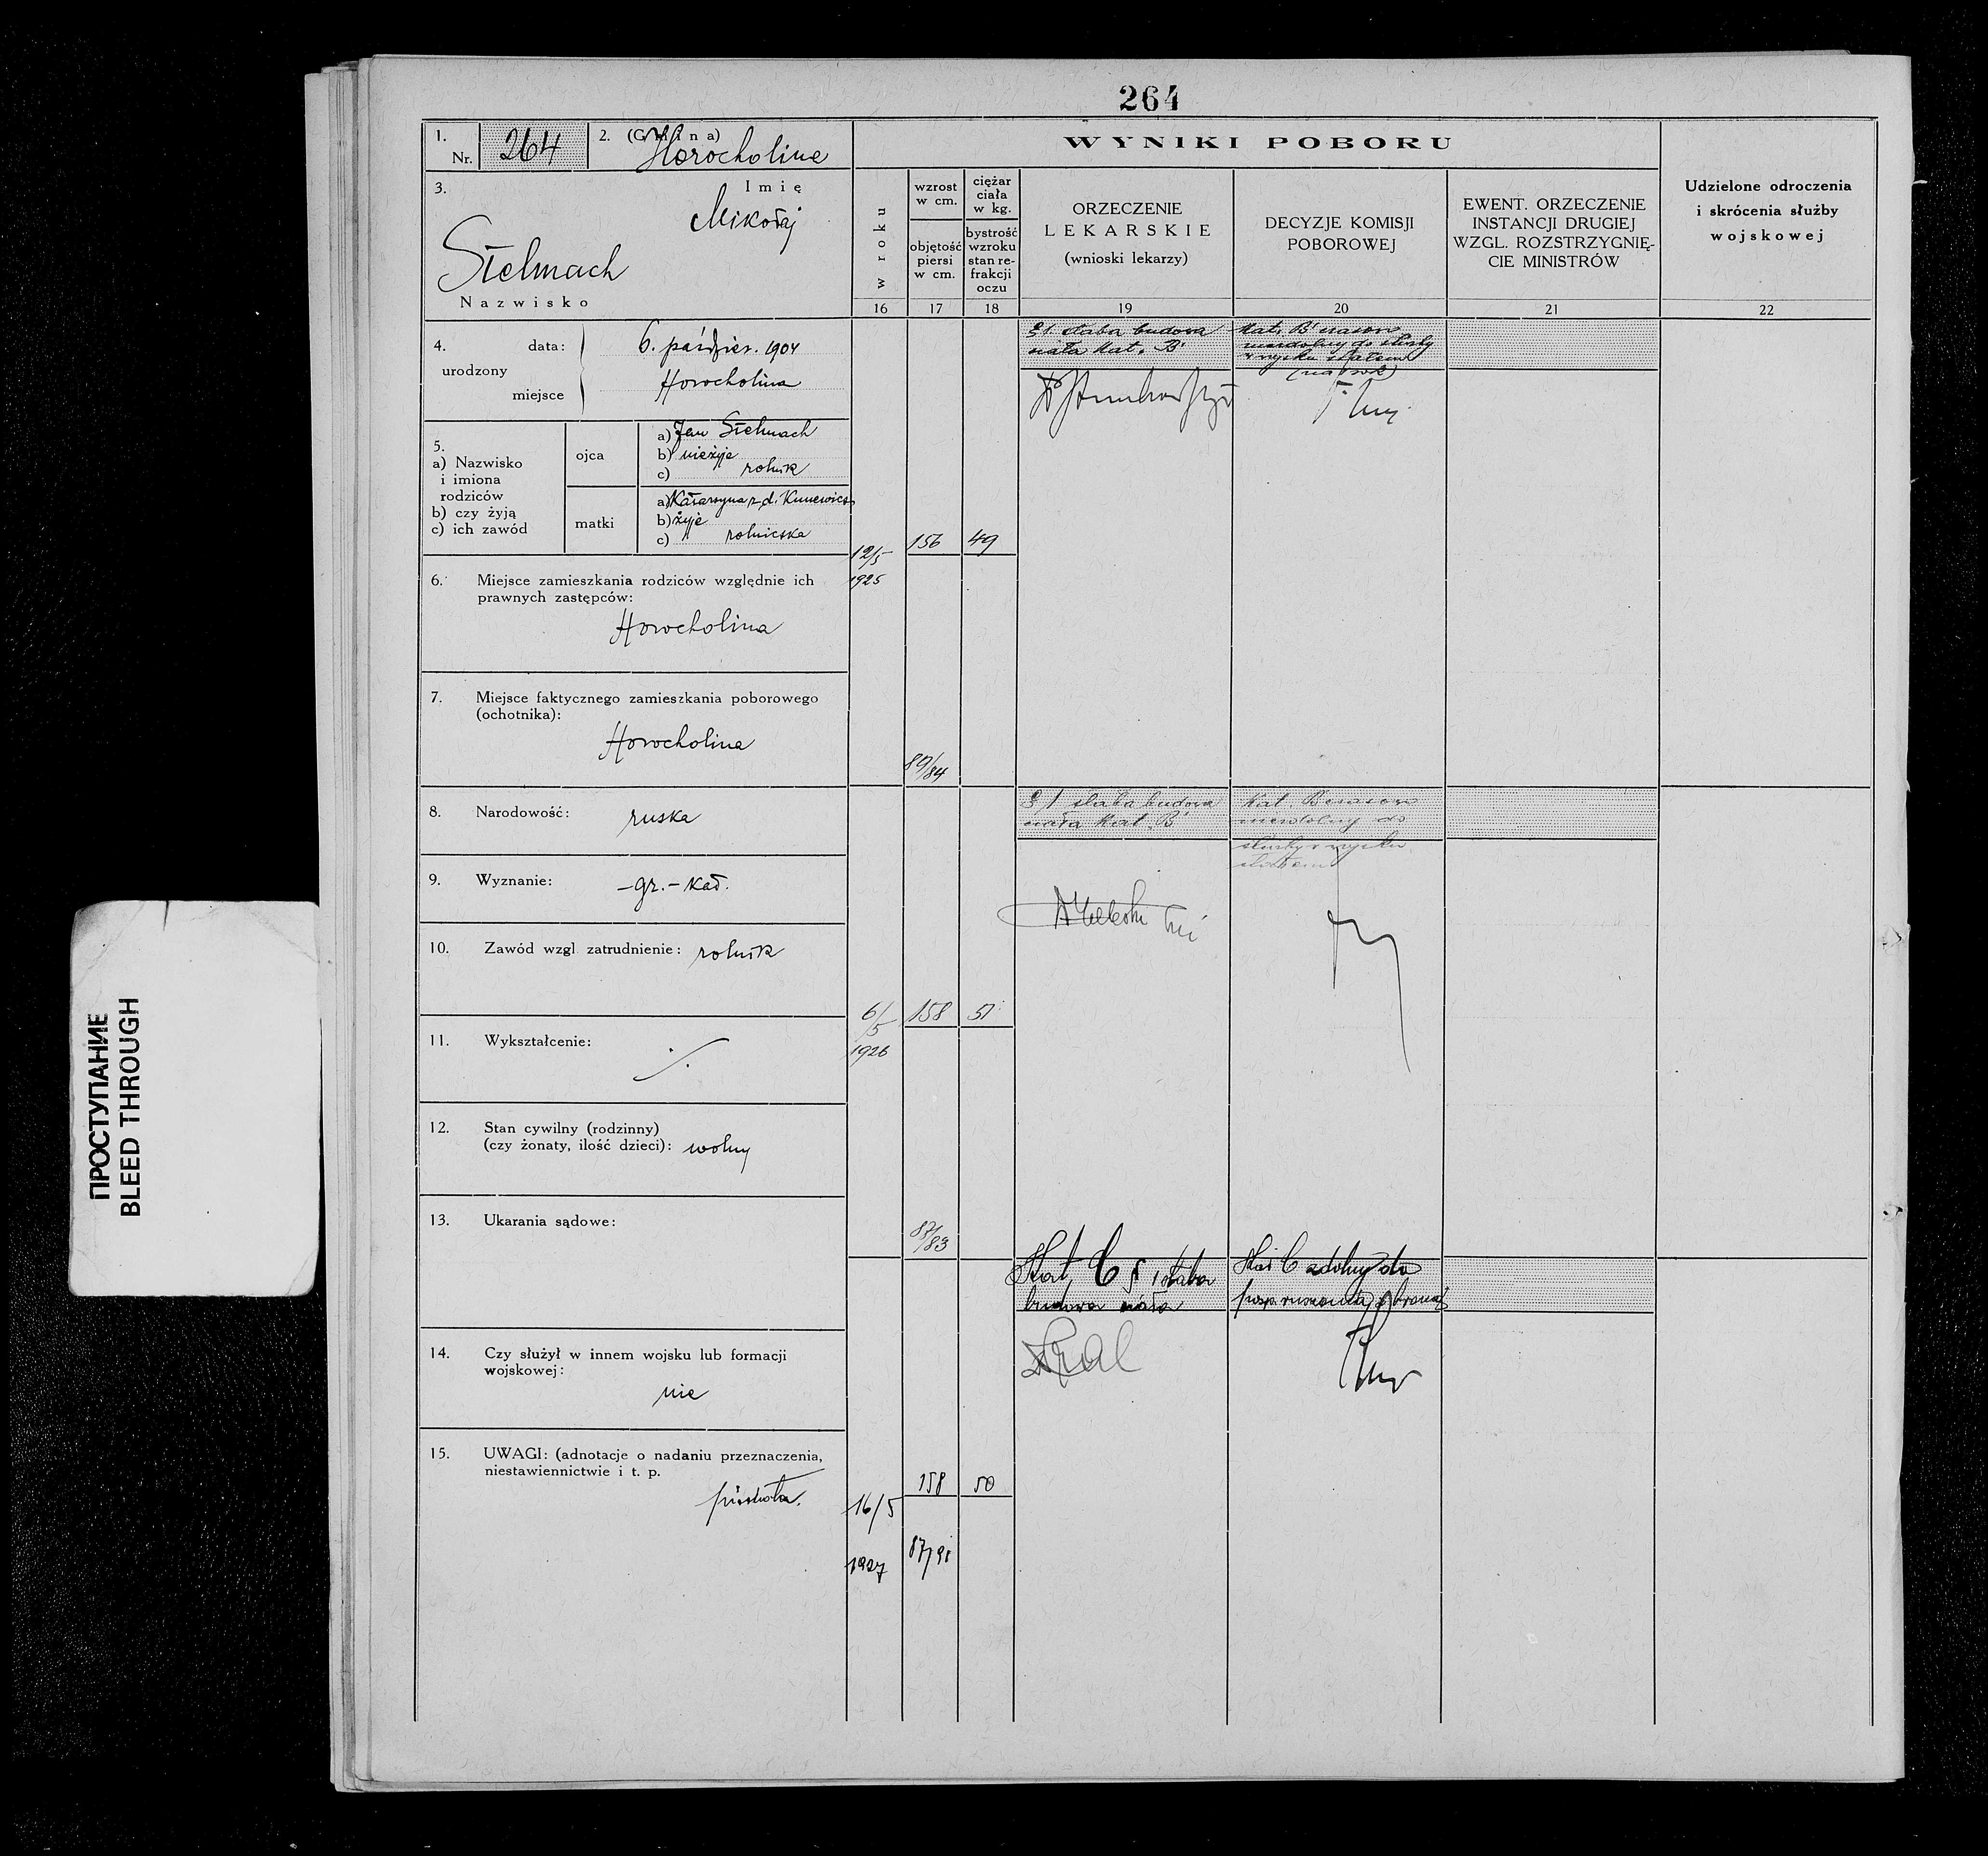 264
1.
Nr. 264
2. (Gmina) Horocholina
3.
Imię
Mikołaj
Stelmach
Nazwisko
4.
urodzony
data: 6. paździer. 1904
miejsce Horocholina
5.
a) Nazwisko
i imiona
rodziców
b) czy żyją
c) ich zawód
ojca
a) Jan Stelmach
b) nieżyje
c) rolnik
matki
a) Katarzyna z d.
b) żyje
c) rolniczka
6. Miejsce zamieszkania rodziców względnie ich
prawnych zastępców:
Horocholina
7. Miejsce faktycznego zamieszkania poborowego
(ochotnika):
Horocholina
8. Narodowość: ruska
9. Wyznanie: - gr. - kat.
10. Zawód wzgl. zatrudnienie: rolnik
11. Wykształcenie: ./.
12. Stan cywilny (rodzinny)
(czy żonaty, ilość dzieci): wolny
13. Ukarania sądowe:
14. Czy służył w innem wojsku lub formacji
wojskowej:
nie
15. UWAGI: (adnotacje o nadaniu przeznaczenia,
niestawiennictwie i t. p.
piechota.
WYNIKI POBORU
w roku
16
wzrost
w cm.
objętość
piersi
w cm.
17
ciężar
ciała
w kg.
bystrość
wzroku
stan re-
frakcji
oczu
18
ORZECZENIE
LEKARSKIE
(wnioski lekarzy)
19
DECYZJE KOMISJI
POBOROWEJ
20
EWENT. ORZECZENIE
INSTANCJI DRUGIEJ
WZGL. ROZSTRZYGNIĘ-
CIE MINISTRÓW
21
Udzielone odroczenia
i skrócenia służby
wojskowej
22
12/5
1925
156
49
89/84
§ 1. słaba budowa
ciała Kat. B
Kat. B czasowo
niezdolny do służby
w wojsku stałem
(na rok)
6/5
1926
158
51
87/83
§ 1 słaba budowa
ciała Kat. B
Kat. B czasowo
niezdolny do
służby w wojsku
stałem
16/5
1927
158
50
87/91
Kat. C § 1 słaba
budowa ciała
Kat C zdolny do
posp. ruszenia z bronią
ПРОСТУПАНИЕ
BLEED THROUGH